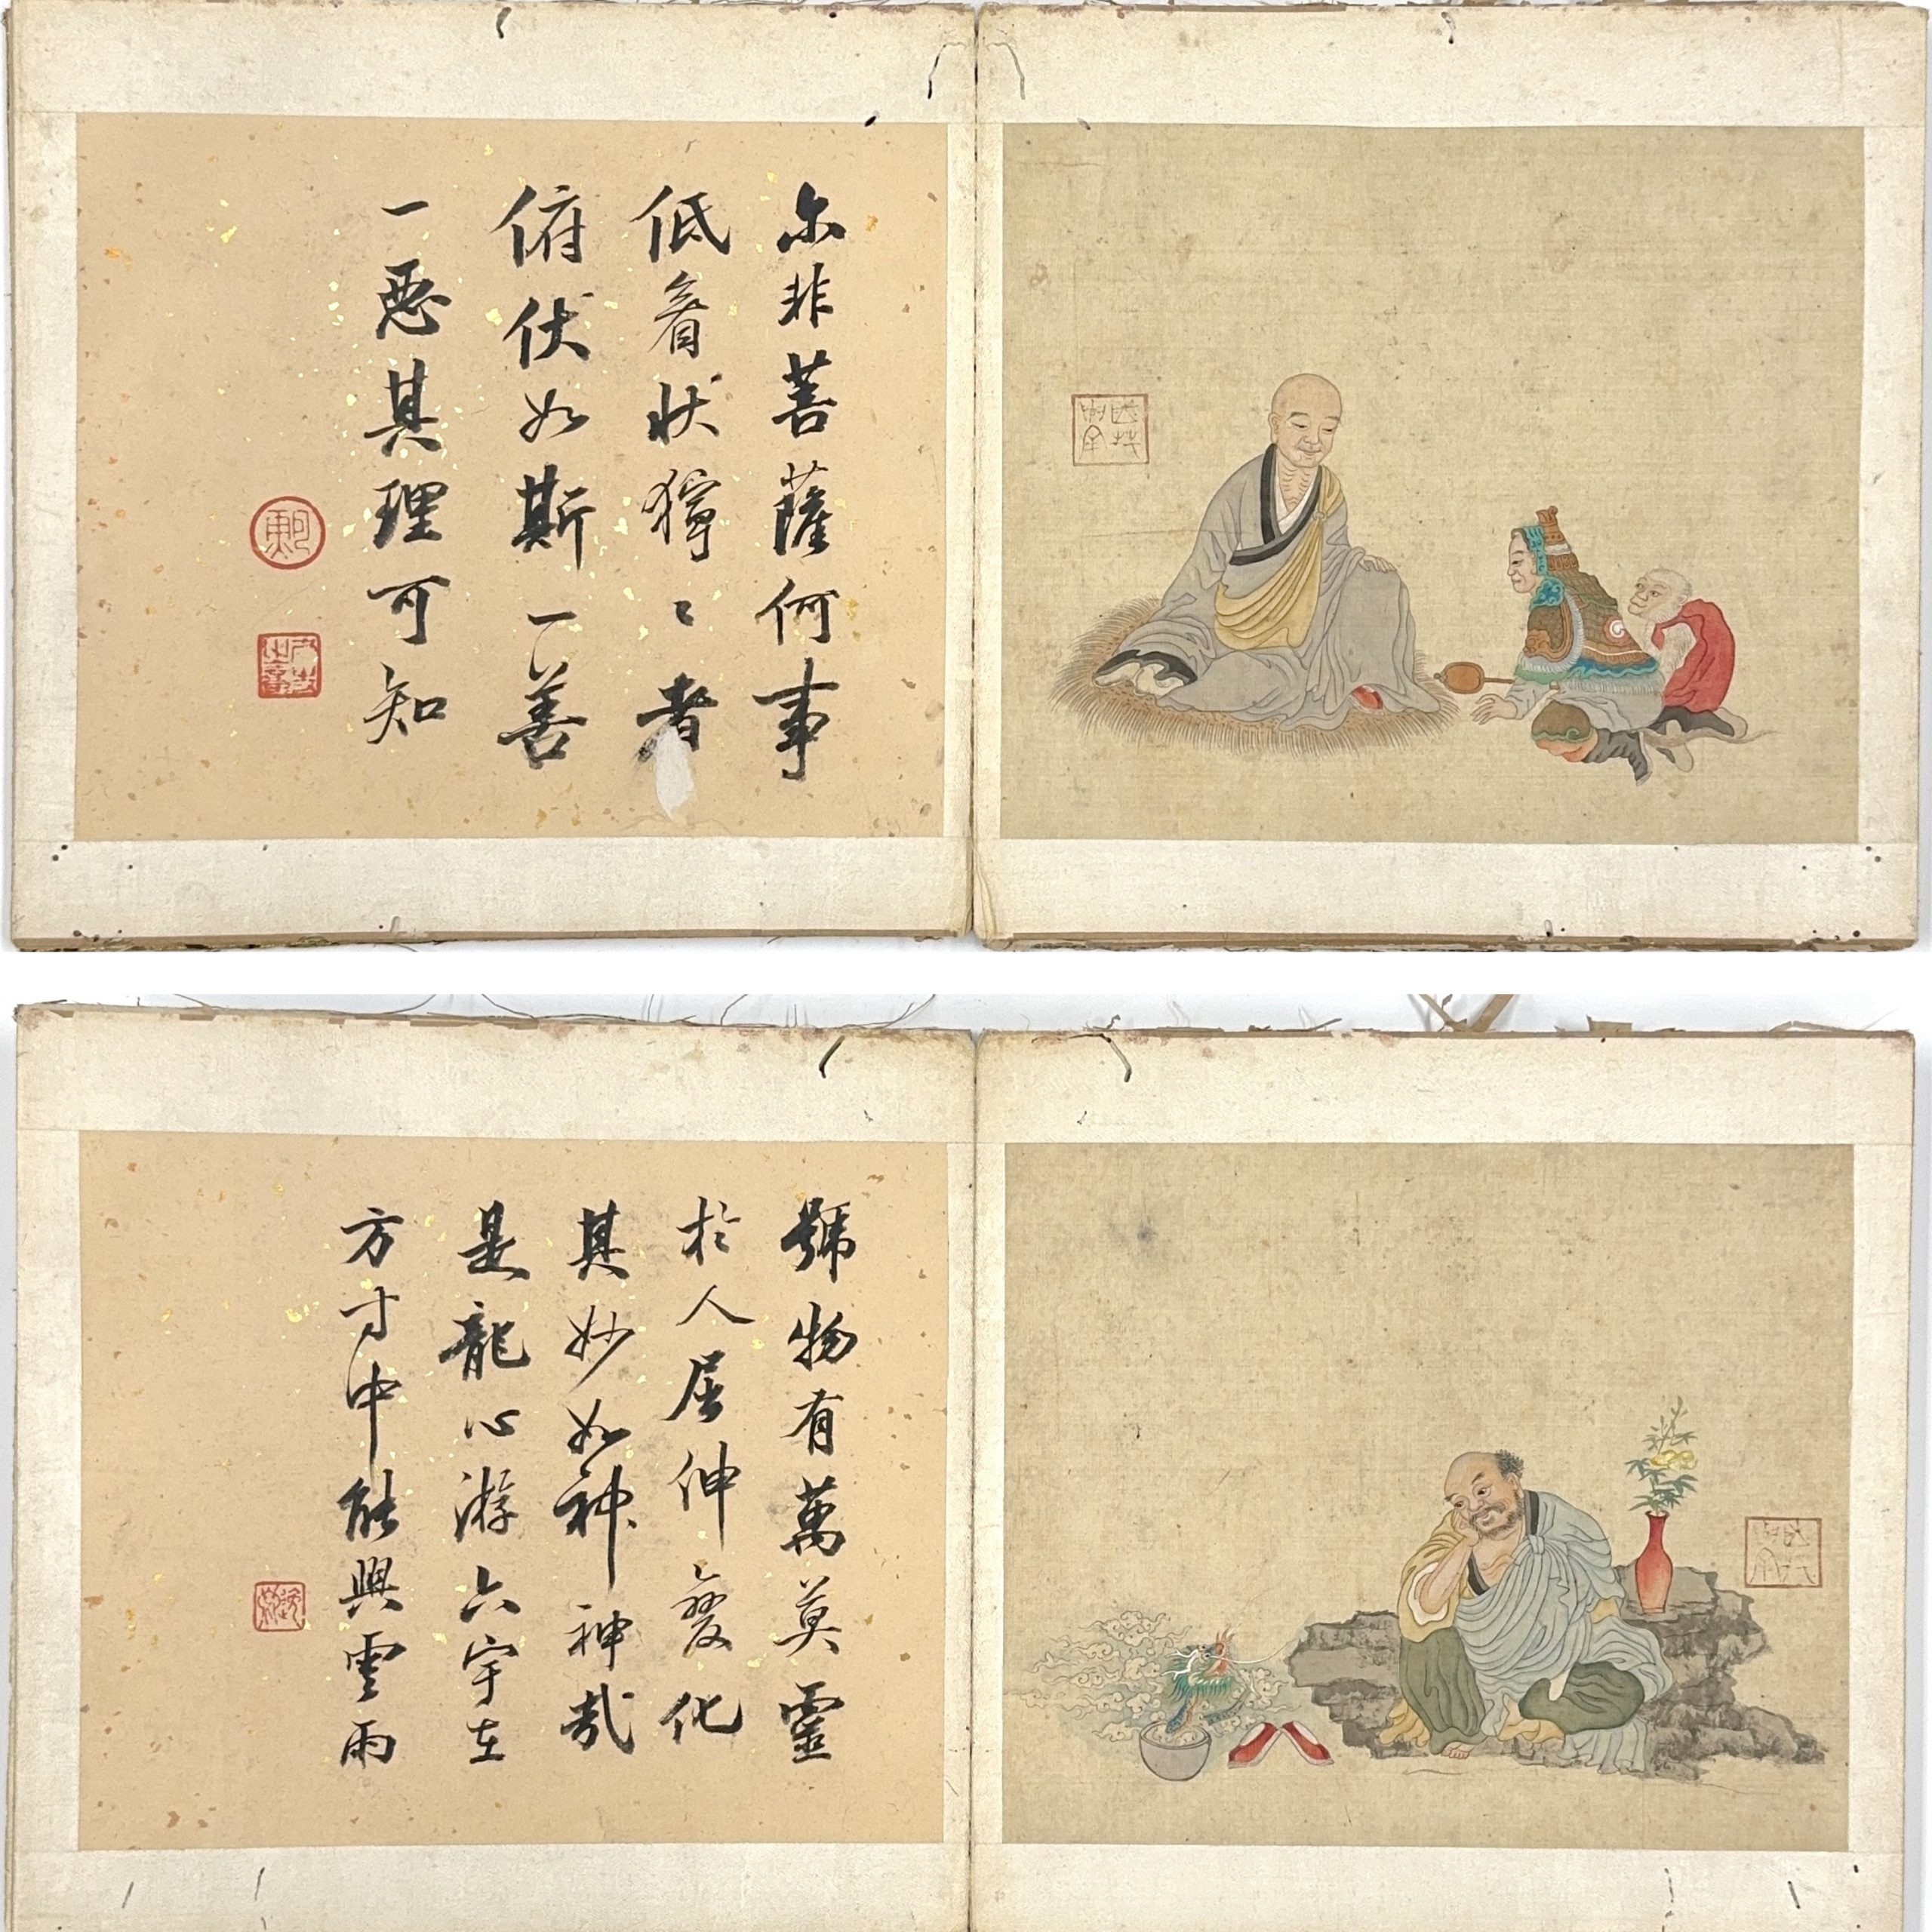 尔非菩薩何事
低眉状獰〻者
俯伏如斯一善
一惡其理可知
號物有萬莫靈
於人屈伸變化
其妙如神神哉
是龍心游六宇在
方寸中能興雲雨